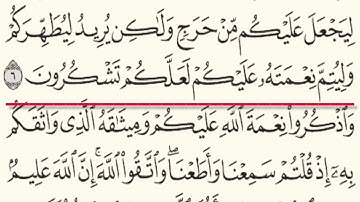 لِيَجْعَلَ عَلَيْكُم مِّنْ حَرَجٍ وَلَٰكِن يُرِيدُ لِيُطَهِّرَكُمْ
وَلِيُتِمَّ نِعْمَتَهُۥ عَلَيْكُمْ لَعَلَّكُمْ تَشْكُرُونَ ٦
وَٱذْكُرُوا۟ نِعْمَةَ ٱللَّهِ عَلَيْكُمْ وَمِيثَٰقَهُ ٱلَّذِى وَاثَقَكُم
بِهِۦٓ إِذْ قُلْتُمْ سَمِعْنَا وَأَطَعْنَا ۖ وَٱتَّقُوا۟ ٱللَّهَ ۚ إِنَّ ٱللَّهَ عَلِيمٌۢ